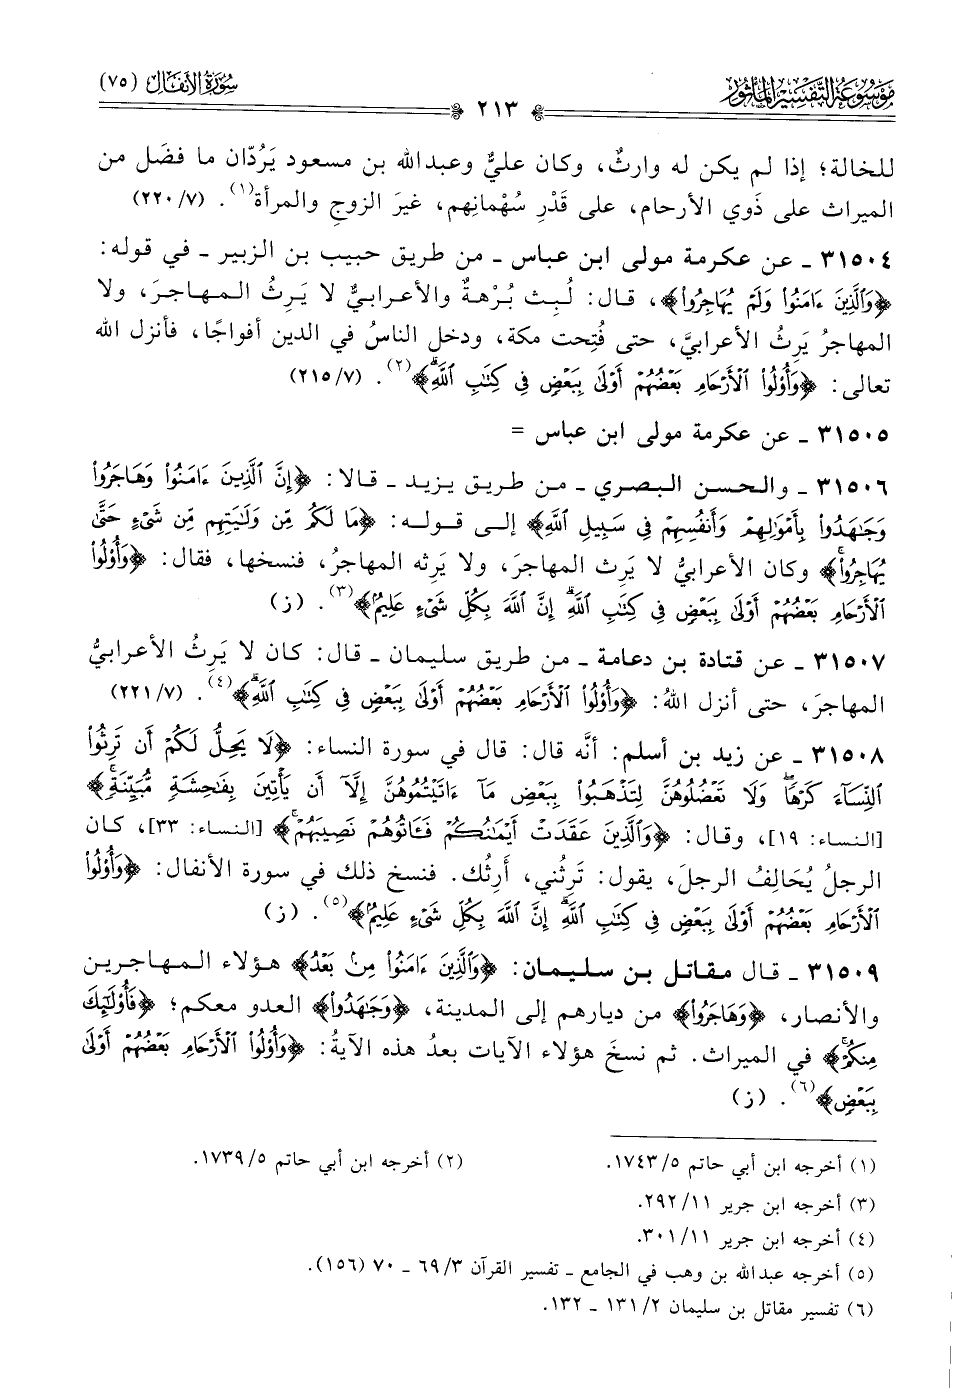 موسوعة التفسير المأثور
سورة الأنفال (٧٥)
٢١٣
للخالة؛ إذا لم يكن له وارثٌ، وكان عليٌّ وعبدالله بن مسعود يَرُدّان ما فضَل من
الميراث على ذَوي الأرحام، على قَدْرِ سُهْمانِهم، غيرَ الزوجِ والمرأة(١). (٢٢٠/٧)
٣١٥٠٤ ـ عن عكرمة مولى ابن عباس ـ من طريق حبيب بن الزبير ـ في قوله:
﴿وَالَّذِينَ ءَامَنُوا وَلَمْ يُهَاجِرُوا﴾، قال: لُبِث بُرْهةٌ والأعرابيُّ لا يَرِثُ المهاجرَ، ولا
المهاجرُ يَرِثُ الأعرابيَّ، حتى فُتِحت مكة، ودخل الناسُ في الدين أفواجًا، فأنزل الله
تعالى: ﴿وَأُوْلُوا الْأَرْحَامِ بَعْضُهُمْ أَوْلَى بِبَعْضٍ فِي كِتَابِ اللَّهِۗ﴾(٢). (٢١٥/٧)
٣١٥٠٥ ـ عن عكرمة مولى ابن عباس =
٣١٥٠٦ ـ والحسن البصري ـ من طريق يزيد ـ قالا: ﴿إِنَّ الَّذِينَ ءَامَنُوا وَهَاجَرُوا
وَجَاهَدُوا بِأَمْوَالِهِمْ وَأَنفُسِهِمْ فِي سَبِيلِ اللَّهِ﴾ إلى قوله: ﴿مَا لَكُم مِّن وَلَايَتِهِم مِّن شَيْءٍ حَتَّىٰ
يُهَاجِرُواۚ﴾ وكان الأعرابيُّ لا يَرِث المهاجرَ، ولا يَرِثه المهاجرُ، فنسخها، فقال: ﴿وَأُوْلُوا
الْأَرْحَامِ بَعْضُهُمْ أَوْلَى بِبَعْضٍ فِي كِتَابِ اللَّهِۗ إِنَّ اللَّهَ بِكُلِّ شَيْءٍ عَلِيمٌ﴾(٣). (ز)
٣١٥٠٧ ـ عن قتادة بن دعامة ـ من طريق سليمان ـ قال: كان لا يَرِثُ الأعرابيُّ
المهاجرَ، حتى أنزل اللهُ: ﴿وَأُوْلُوا الْأَرْحَامِ بَعْضُهُمْ أَوْلَى بِبَعْضٍ فِي كِتَابِ اللَّهِۗ﴾(٤). (٢٢١/٧)
٣١٥٠٨ ـ عن زيد بن أسلم: أنَّه قال: قال في سورة النساء: ﴿لَا يَحِلُّ لَكُمْ أَن تَرِثُوا
النِّسَاءَ كَرْهًاۖ وَلَا تَعْضُلُوهُنَّ لِتَذْهَبُوا بِبَعْضِ مَا ءَاتَيْتُمُوهُنَّ إِلَّا أَن يَأْتِينَ بِفَاحِشَةٍ مُّبَيِّنَةٍۚ﴾
[النساء: ١٩]، وقال: ﴿وَالَّذِينَ عَقَدَتْ أَيْمَانُكُمْ فَـَٔاتُوهُمْ نَصِيبَهُمْۚ﴾ [النساء: ٣٣]، كان
الرجلُ يُحَالِفُ الرجلَ، يقول: تَرِثُني، أَرِثُك. فنسخ ذلك في سورة الأنفال: ﴿وَأُوْلُوا
الْأَرْحَامِ بَعْضُهُمْ أَوْلَى بِبَعْضٍ فِي كِتَابِ اللَّهِۗ إِنَّ اللَّهَ بِكُلِّ شَيْءٍ عَلِيمٌ﴾(٥). (ز)
٣١٥٠٩ ـ قال مقاتل بن سليمان: ﴿وَالَّذِينَ ءَامَنُوا مِنۢ بَعْدُ﴾ هؤلاء المهاجرين
والأنصار، ﴿وَهَاجَرُوا﴾ من ديارهم إلى المدينة، ﴿وَجَاهَدُوا﴾ العدو معكم؛ ﴿فَأُوْلَٰئِكَ
مِنكُمْۚ﴾ في الميراث. ثم نسخَ هؤلاء الآيات بعدُ هذه الآيةُ: ﴿وَأُوْلُوا الْأَرْحَامِ بَعْضُهُمْ أَوْلَى
بِبَعْضٍ﴾(٦). (ز)
(١) أخرجه ابن أبي حاتم ١٧٤٣/٥.
(٢) أخرجه ابن أبي حاتم ١٧٣٩/٥.
(٣) أخرجه ابن جرير ٢٩٢/١١.
(٤) أخرجه ابن جرير ٣٠١/١١.
(٥) أخرجه عبدالله بن وهب في الجامع ـ تفسير القرآن ٦٩/٣ ـ ٧٠ (١٥٦).
(٦) تفسير مقاتل بن سليمان ١٣١/٢ ـ ١٣٢.